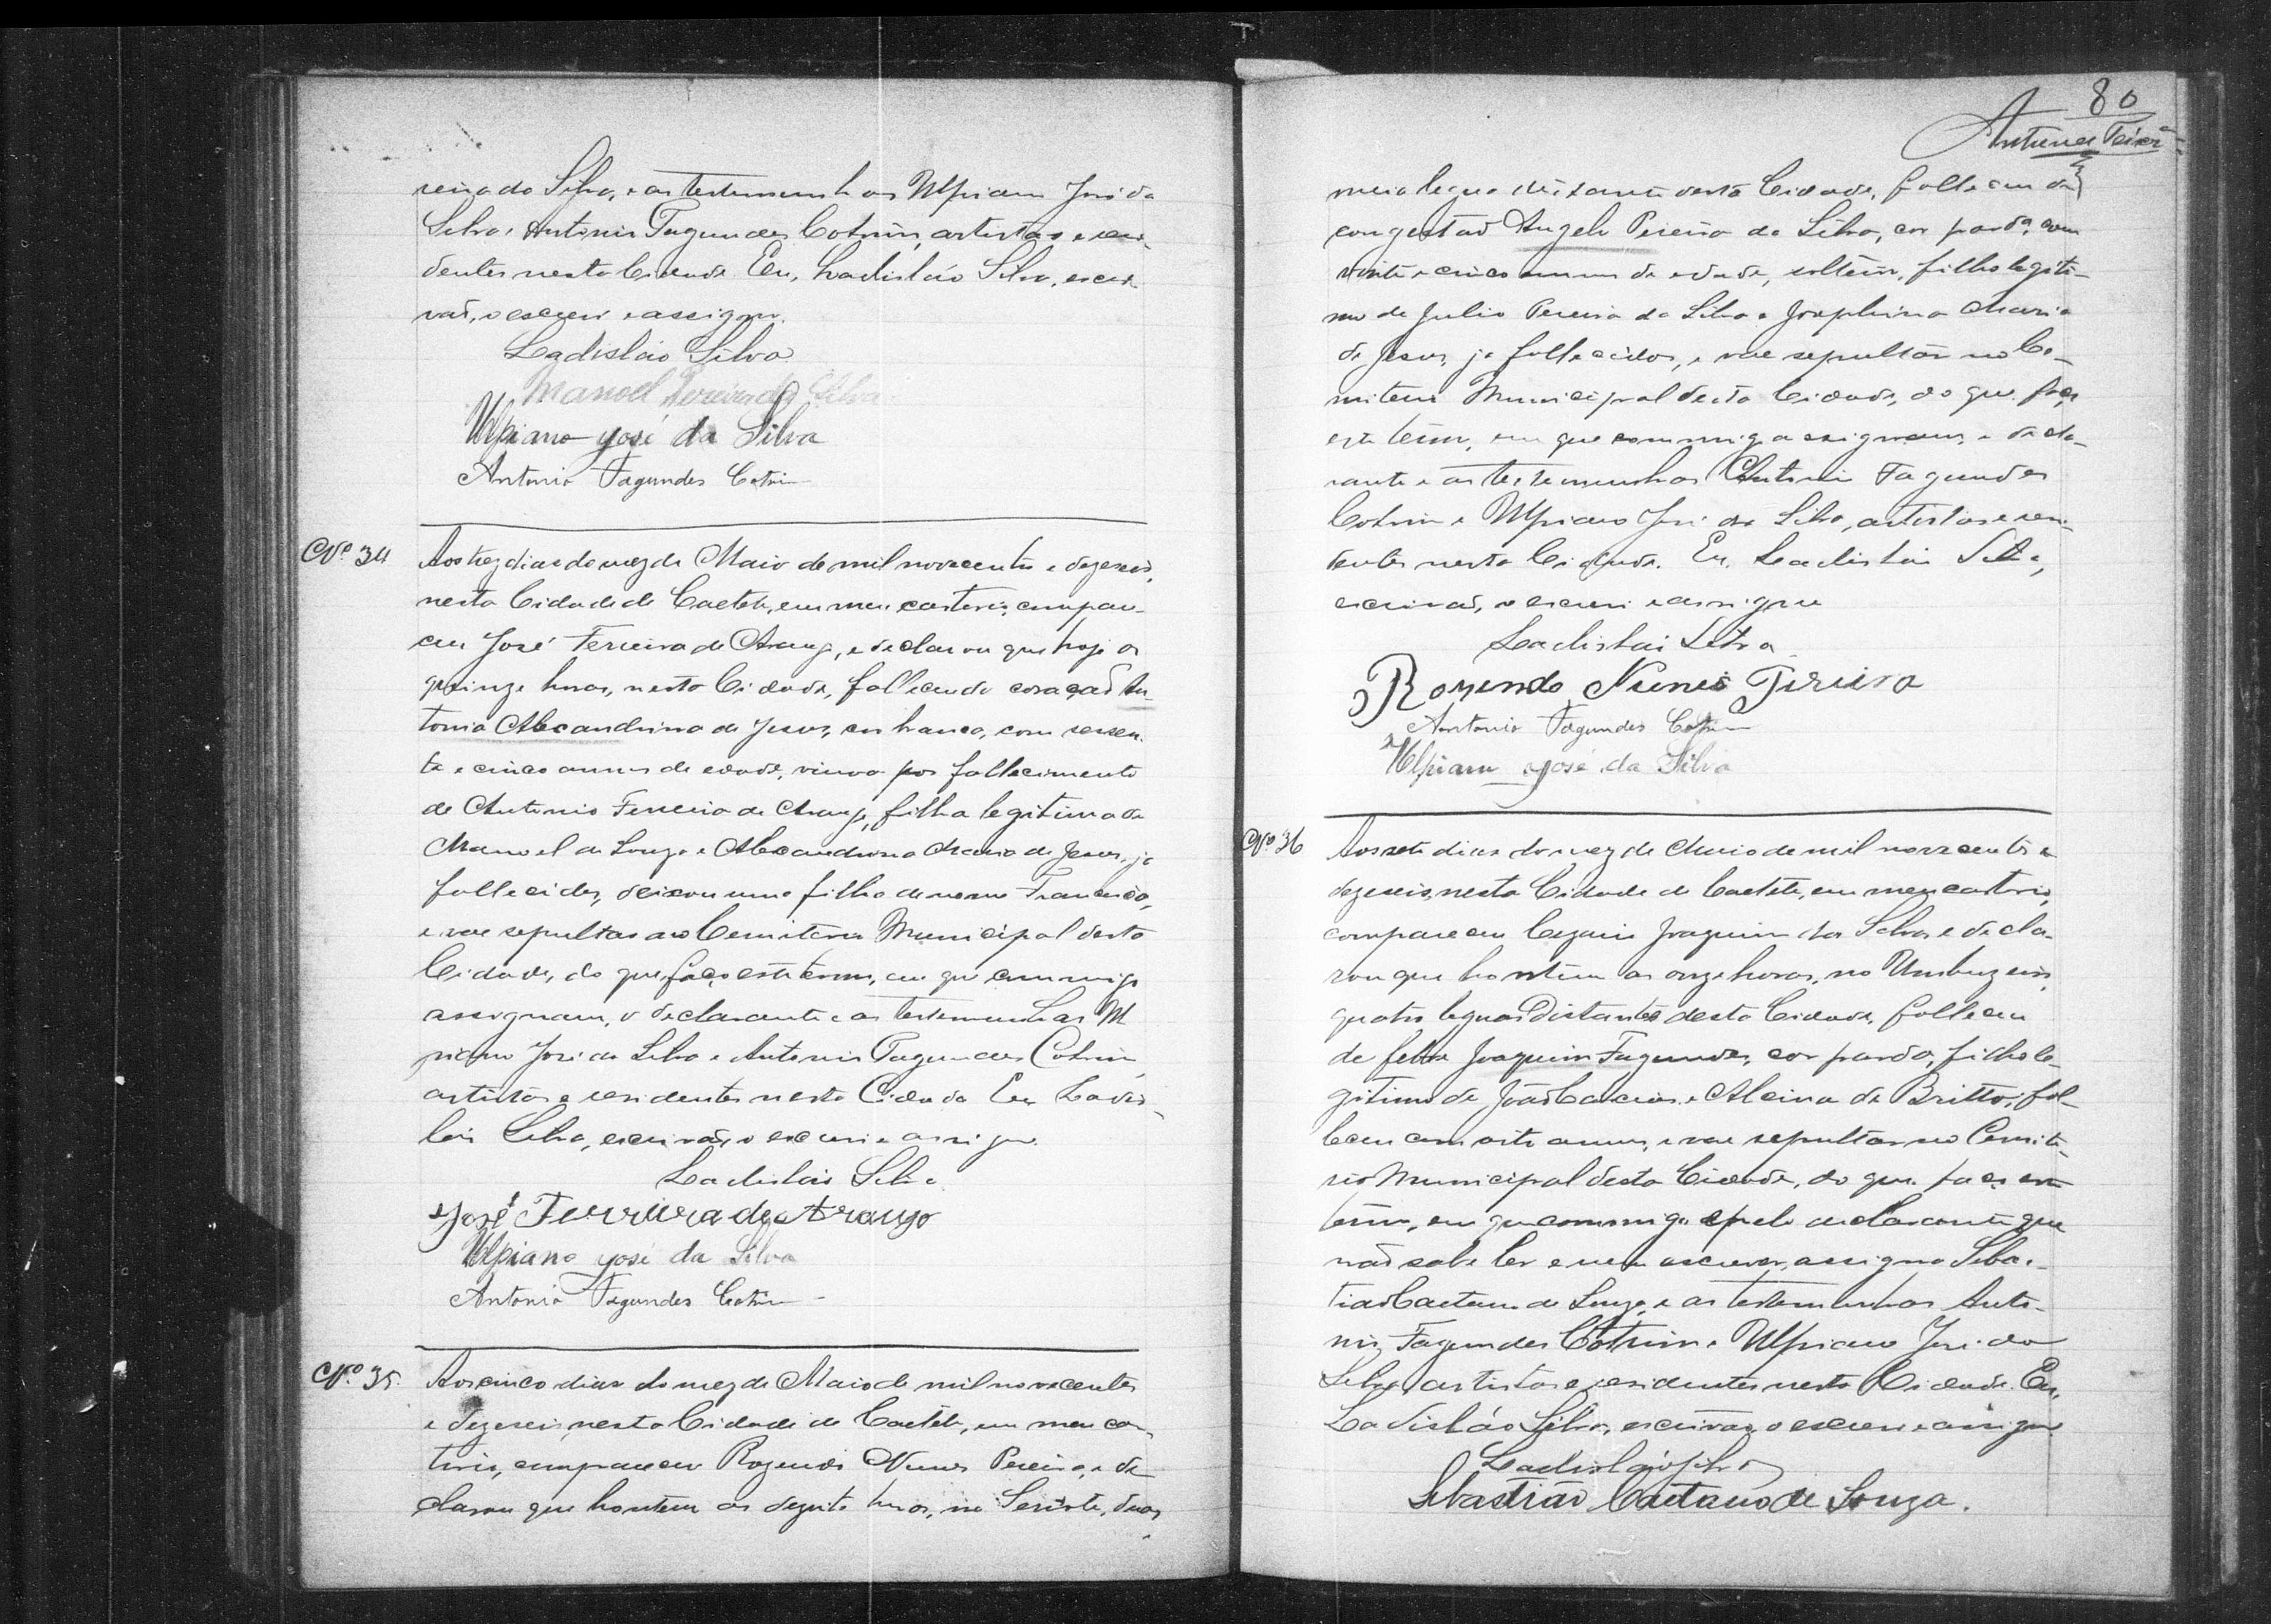 reira da Silva, e as testemunhas Ulpiano José da
Silva e Antonio Fagundes Cotrim, artistas e resi-
dentes nesta Cidade. Eu, Ladisláo Silva, escri-
vaõ, o escrevi e assigno.
Ladisláo Silva
Manoel Pereira da Silva
Ulpiano José da Silva
Antonio Fagundes Cotrim
Nº 34
Aos trez dias do mez de Maio de mil novecentos e dezeseis,
nesta Cidade de Caeteté, em meu cartorio, compare-
ceu José Ferreira de Araujo, e declarou que hoje as
quinze horas, nesta Cidade, falleceu do coraçaõ An-
tonia Alexandrina de Jesus, cor branca, com sessen-
ta e cinco annos de edade, viuva por fallecimento
de Antonio Ferreira de Araujo, filha legitima de
Manoel de Souza e Alexandrina Maria de Jesus, já
fallecidos, deixou uma filha de nome Francisca,
e vae sepultar no Cemiterio Municipal desta
Cidade, do que faço este termo, em que commigo
assignam, o declarante e as testemunhas Ul
piano José da Silva e Antonio Fagundes Cotrim,
artistas e residentes nesta Cidade Eu Ladis-
láo Silva, escrivaõ, o escrevi e assigno.
Ladisláo Silva
José Ferreira de Araujo
Ulpiano José da Silva
Antonio Fagundes Cotrim
Nº 35.
Aos cinco dias do mez de Maio de mil novecentos
e dezeseis, nesta Cidade de Caeteté, em meu car-
torio, compareceu Rozendo Nunes Pereira, e de-
clarou que hontem as dezoito horas, no duas
80
Antunes Teixeira
meia legua distante desta Cidade, falleceu de
congestaõ Angelo Pereira da Silva, cor parda, com
vinte e cinco annos de edade, solteiro, filho legiti-
mo de Julio Pereira da Silva e Josephina Maria
de Jesus, já fallecidos, e vae sepultar no Ce-
miterio Municipal desta Cidade, do que faço
este termo, em que commigo assignam, o decla-
rante e as testemunhas Antonio Fagundes
Cotrim e Ulpiano José da Silva, artistas e resi-
dentes nesta Cidade. Eu, Ladisláo Silva,
escrivaõ, o escrevi e assigno
Ladisláo Silva
Rozendo Nunes Pereira
Antonio Fagundes Cotrim
Ulpiano José da Silva
Nº 36
Aos sete dias do mez de Maio de mil novecentos e
dezeseis, nesta Cidade de Caeteté, em meu cartorio,
compareceu Joaquim da Silva e decla-
rou que hontem as onze horas, no Umbuzeiro,
quatro leguas distante desta Cidade, falleceu
de febre Joaquim Fagundes, cor parda, filho le-
gitimo de Joaõ e Alcina de Britto, fal-
leceu com oito annos, e vae sepultar no Cemite-
rio Municipal desta Cidade, do que faço este
termo, em que commigo e pelo declarante que
naõ sabe ler e nem escrever, assigna Sebas-
tiaõ Caetano de Souza, e as testemunhas Anto-
nio Fagundes Cotrim e Ulpiano José da
Silva artistas e residentes nesta Cidade. Eu,
Ladisláo Silva, escrivaõ, o escrevi e assigno
Ladisláo Silva
Sebastiaõ Caetano de Souza.